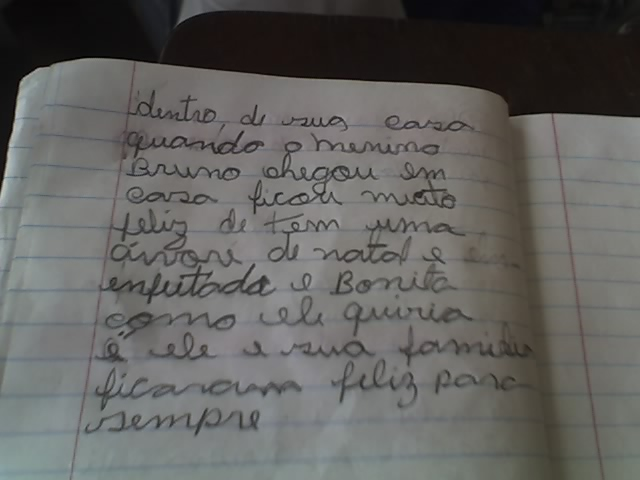 dentro, de sua casa
quando o menino
Bruno chegou em
casa ficou muito
feliz de tem uma
árvore de natal e
enfeitada e Bonita
como ele quiria
e ele e sua familia
ficaram feliz para
sempre